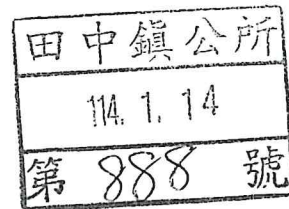 田中鎮公所
114. 1. 14
第 888 號